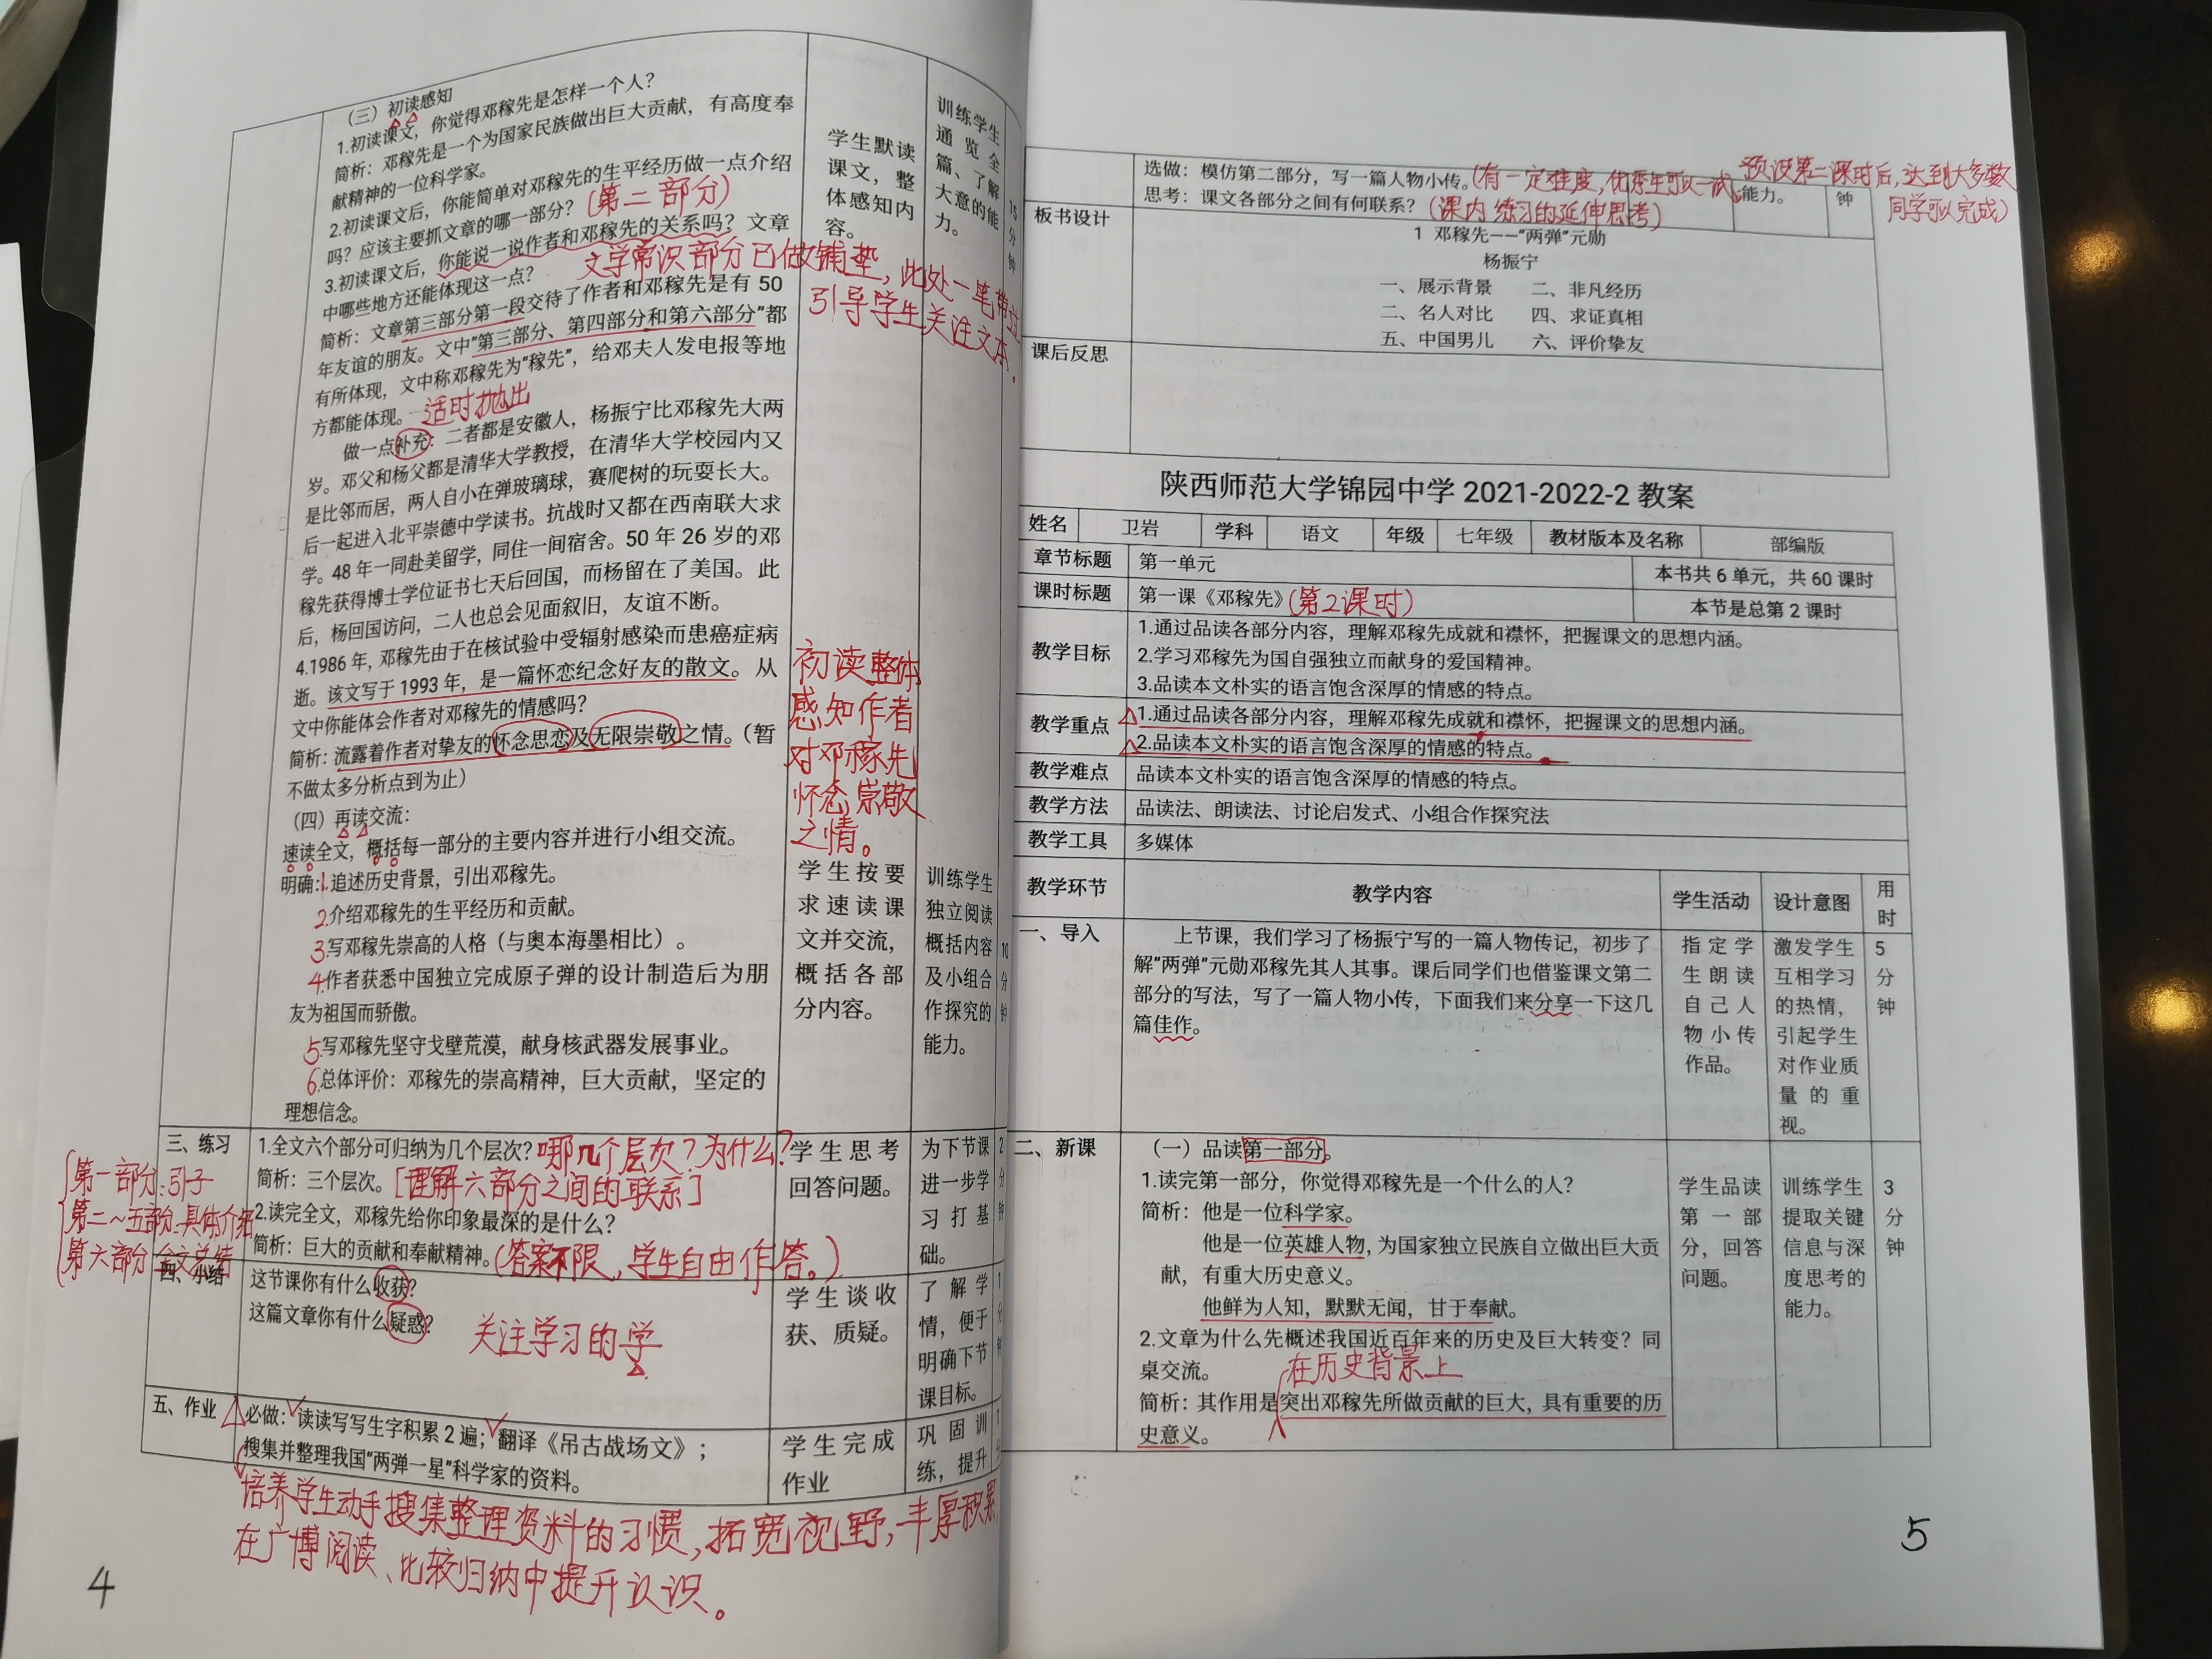 （三）初读感知
1.初读课文，你觉得邓稼先是怎样一个人？
简析：邓稼先是一个为国家民族做出巨大贡献，有高度奉
献精神的一位科学家。
2.初读课文后，你能简单对邓稼先的生平经历做一点介绍
吗？应该主要抓文章的哪一部分？（第二部分）
3.初读课文后，你能说一说作者和邓稼先的关系吗？文章
中哪些地方还能体现这一点？
文学常识部分已做铺垫，此处一笔带过
引导学生关注文本。
简析：文章第三部分第一段交待了作者和邓稼先是有 50
年友谊的朋友。文中“第三部分、第四部分和第六部分”都
有所体现，文中称邓稼先为“稼先”，给邓夫人发电报等地
方都能体现。
适时抛出
做一点补充：二者都是安徽人，杨振宁比邓稼先大两
岁。邓父和杨父都是清华大学教授，在清华大学校园内又
是比邻而居，两人自小在弹玻璃球，赛爬树的玩耍长大。
后一起进入北平崇德中学读书。抗战时又都在西南联大求
学。48 年一同赴美留学，同住一间宿舍。50 年 26 岁的邓
稼先获得博士学位证书七天后回国，而杨留在了美国。此
后，杨回国访问，二人也总会见面叙旧，友谊不断。
4.1986 年，邓稼先由于在核试验中受辐射感染而患癌症病
逝。该文写于 1993 年，是一篇怀恋纪念好友的散文。从
文中你能体会作者对邓稼先的情感吗？
简析：流露着作者对挚友的怀念思恋及无限崇敬之情。（暂
不做太多分析点到为止）
（四）再读交流：
速读全文，概括每一部分的主要内容并进行小组交流。
明确：1.追述历史背景，引出邓稼先。
2.介绍邓稼先的生平经历和贡献。
3.写邓稼先崇高的人格（与奥本海墨相比）。
4.作者获悉中国独立完成原子弹的设计制造后为朋
友为祖国而骄傲。
5.写邓稼先坚守戈壁荒漠，献身核武器发展事业。
6.总体评价：邓稼先的崇高精神，巨大贡献，坚定的
理想信念。
学生默读
课文，整
体感知内
容。
初读整体
感知作者
对邓稼先
怀念，崇敬
之情。
学生按要
求速读课
文并交流，
概括各部
分内容。
训练学生
通览全
篇、了解
大意的能
力。
15
分
钟
训练学生
独立阅读
概括内容
及小组合
作探究的
能力。
10
分
钟
三、练习
第一部分：引子
第二～五部分：具体介绍
第六部分：全文总结
1.全文六个部分可归纳为几个层次？哪几个层次？为什么？
简析：三个层次。[理解六部分之间的联系]
2.读完全文，邓稼先给你印象最深的是什么？
简析：巨大的贡献和奉献精神。（答案不限，学生自由作答。）
学生思考
回答问题。
为下节课
进一步学
习打基
础。
2
分
钟
四、小结
这节课你有什么收获？
这篇文章你有什么疑惑？
关注学习的学
学生谈收
获、质疑。
了解学
情，便于
明确下节
课目标。
1
分
钟
五、作业
必做：读读写写生字积累 2 遍；翻译《吊古战场文》；
搜集并整理我国“两弹一星”科学家的资料。
学生完成
作业
巩固训
练，提升
1
分
培养学生动手搜集整理资料的习惯，拓宽视野，丰厚积累
在广博阅读、比较归纳中提升认识。
4
选做：模仿第二部分，写一篇人物小传。（有一定难度，优秀生可以一试，预设第二课时后，达到大多数
同学可以完成）
思考：课文各部分之间有何联系？（课内练习的延伸思考）
能力。
钟
板书设计
1 邓稼先——“两弹”元勋
杨振宁
一、展示背景 二、非凡经历
二、名人对比 四、求证真相
五、中国男儿 六、评价挚友
课后反思
陕西师范大学锦园中学 2021-2022-2 教案
姓名 卫岩 学科 语文 年级 七年级 教材版本及名称 部编版
章节标题 第一单元 本书共 6 单元，共 60 课时
课时标题 第一课《邓稼先》（第2课时） 本节是总第 2 课时
教学目标
1.通过品读各部分内容，理解邓稼先成就和襟怀，把握课文的思想内涵。
2.学习邓稼先为国自强独立而献身的爱国精神。
3.品读本文朴实的语言饱含深厚的情感的特点。
教学重点
1.通过品读各部分内容，理解邓稼先成就和襟怀，把握课文的思想内涵。
2.品读本文朴实的语言饱含深厚的情感的特点。
教学难点 品读本文朴实的语言饱含深厚的情感的特点。
教学方法 品读法、朗读法、讨论启发式、小组合作探究法
教学工具 多媒体
教学环节 教学内容 学生活动 设计意图 用时
一、导入
上节课，我们学习了杨振宁写的一篇人物传记，初步了
解“两弹”元勋邓稼先其人其事。课后同学们也借鉴课文第二
部分的写法，写了一篇人物小传，下面我们来分享一下这几
篇佳作。
指定学
生朗读
自己人
物小传
作品。
激发学生
互相学习
的热情，
引起学生
对作业质
量的重
视。
5
分
钟
二、新课
（一）品读第一部分。
1.读完第一部分，你觉得邓稼先是一个什么的人？
简析：他是一位科学家。
他是一位英雄人物，为国家独立民族自立做出巨大贡
献，有重大历史意义。
他鲜为人知，默默无闻，甘于奉献。
2.文章为什么先概述我国近百年来的历史及巨大转变？同
桌交流。
在历史背景上
简析：其作用是突出邓稼先所做贡献的巨大，具有重要的历
史意义。
学生品读
第一部
分，回答
问题。
训练学生
提取关键
信息与深
度思考的
能力。
3
分
钟
5